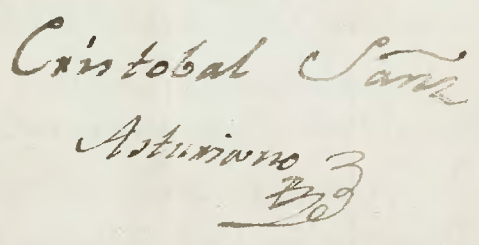 Cristobal Sanz
Asturiano